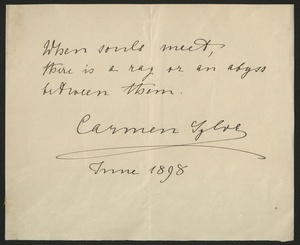 When souls meet,
there is a ray or an abyss
between them.
Carmen Sylva
June 1898